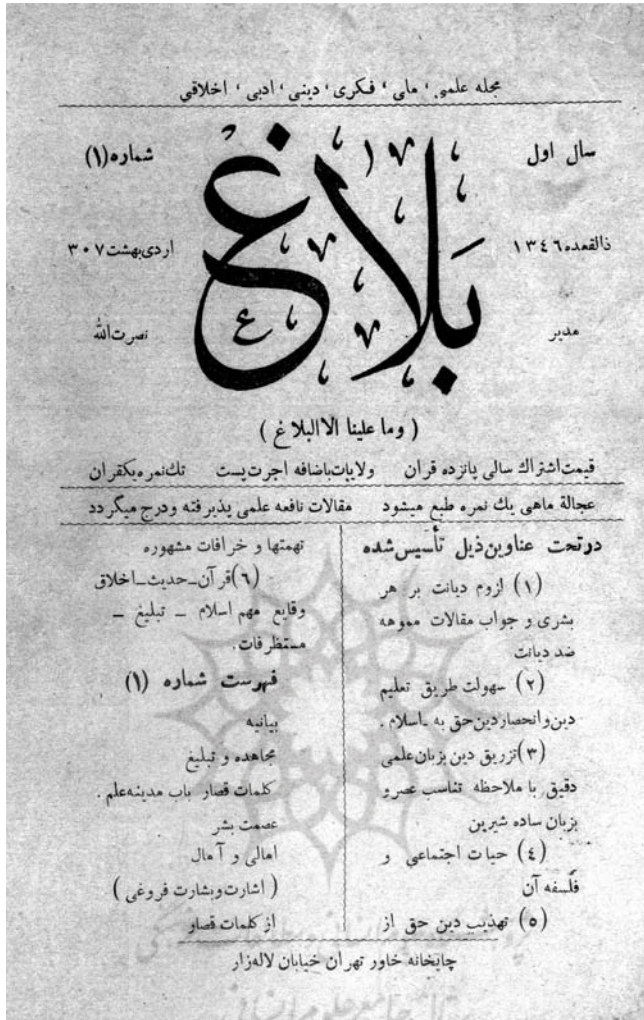 مجله علمی، ملی، فکری، دینی، ادبی، اخلاقی
سال اول
شماره (۱)
بلاغ
ذالقعده ۱۳۴۶
اردی‌بهشت ۳۰۷
مدیر
نصرت‌الله
( وما علینا الاالبلاغ )
قیمت اشتراك سالی پانزده قران ولایات باضافه اجرت پست تك نمره یکقران
عجالة ماهی یك نمره طبع میشود مقالات نافعه علمی پذیرفته و درج میگردد
در تحت عناوین ذیل تأسیس شده
(۱) لزوم دیانت بر هر
بشری و جواب مقالات مموهه
ضد دیانت
(۲) سهولت طریق تعلیم
دین وانحصار دین حق به ـ اسلام .
(۳) تزریق دین بزبان علمی
دقیق با ملاحظه تناسب عصر و
بزبان ساده شیرین
(٤) حیات اجتماعی و
فلسفه آن
(۵) تهذیب دین حق از
تهمتها و خرافات مشهوره
(٦) قرآن ـ حدیث ـ اخلاق
وقایع مهم اسلام ـ تبلیغ ـ
مستظرفات .
فهرست شماره (۱)
بیانیه
مجاهده و تبلیغ
کلمات قصار باب مدینه علم .
عصمت بشر
اهالی و آمال
( اشارت و بشارت فروغی )
از کلمات قصار
چاپخانه خاور تهران خیابان لاله‌زار